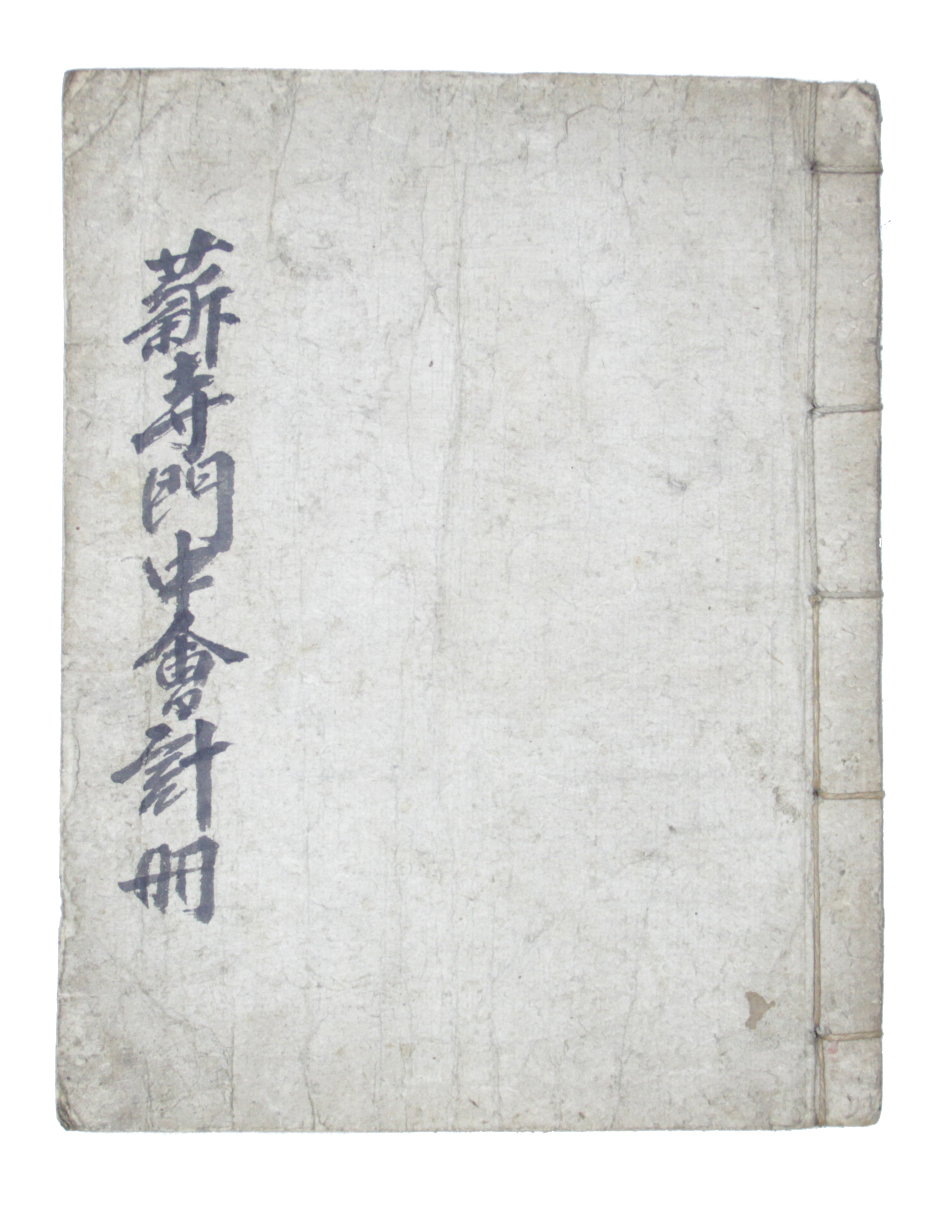 薪寺門中會計冊